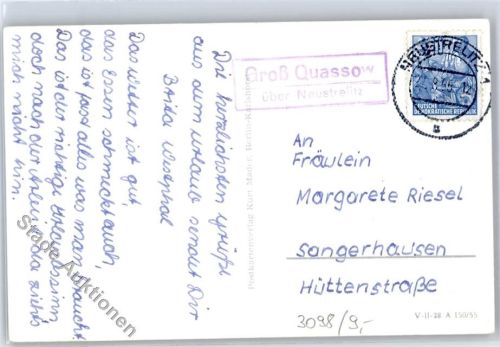 Die herzlichsten Grüße
aus dem Urlaub sendet Dir
Erika Westphal
Das Wetter ist gut,
das Essen schmeckt auch,
das ist fast alles was man braucht.
Das ist der richtige Urlaubssinn,
doch nach der Arbeit da siehts
mich nicht hin.
Groß Quassow
über Neustrelitz
NEUSTRELITZ 1
DEUTSCHE
DEMOKRATISCHE REPUBLIK
a
An
Fräulein
Margarete Riesel
Sangerhausen
Hüttenstraße
3098/9,-
V-11-28 A 150/55
Postkartenverlag Kurt Mader, Berlin-
Stade Auktionen